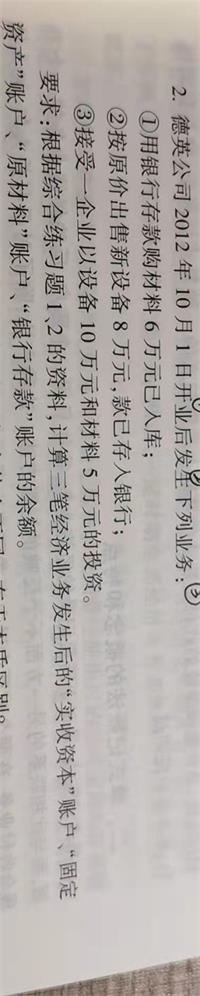 2. 德英公司 2012 年 10 月 1 日开业后发生下列业务:
①用银行存款购材料 6 万元已入库;
②按原价出售新设备 8 万元,款已存入银行;
③接受一企业以设备 10 万元和材料 5 万元的投资。
要求:根据综合练习题 1、2 的资料,计算三笔经济业务发生后的“实收资本”账户、“固定
资产”账户、“原材料”账户、“银行存款”账户的余额。